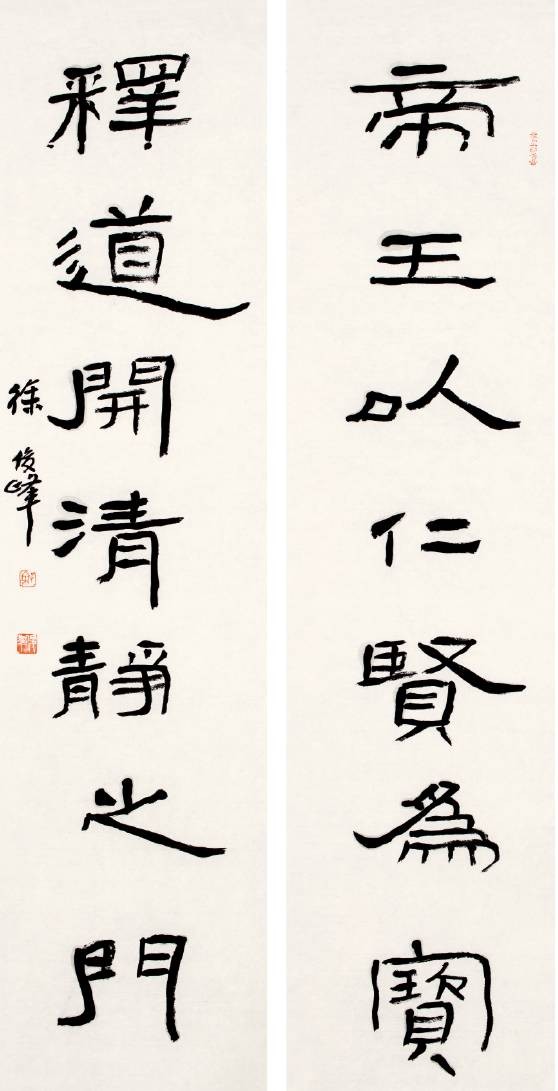 帝王以仁賢為寶
釋道開清靜之門
徐俊峰